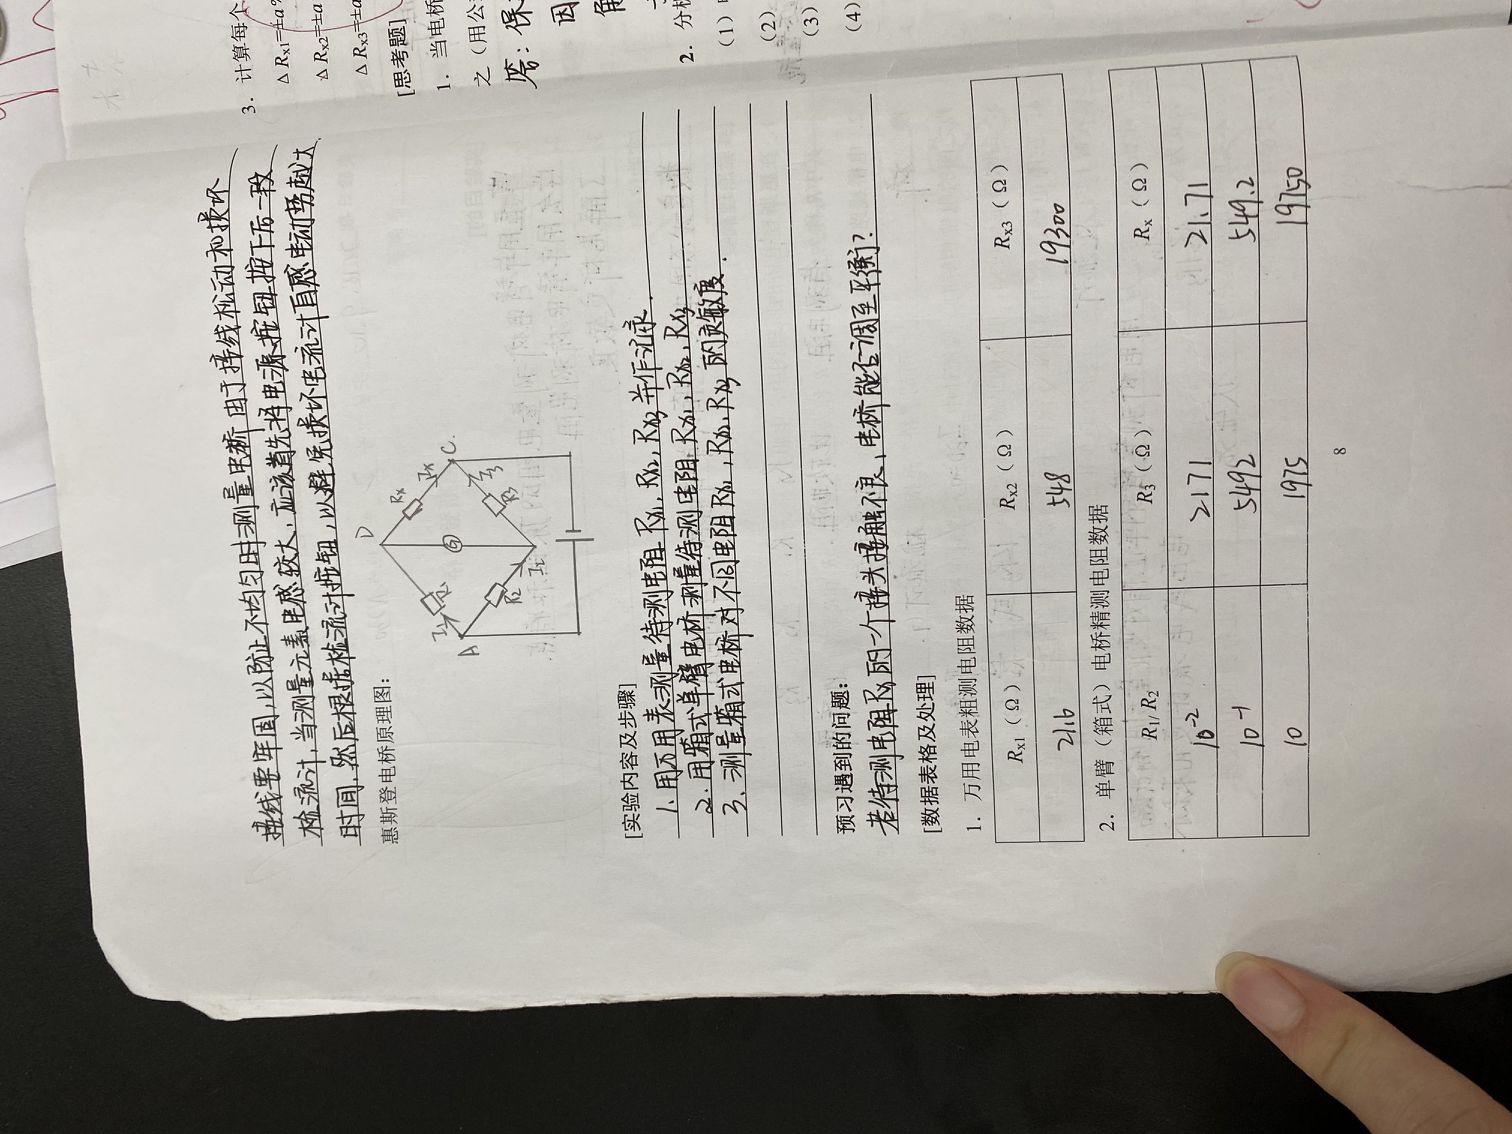 接线要牢固,以防止不均匀时测量电桥由于接线松动和损坏
检流计,当测量元素电感较大,应该首先将电源按钮按下后一致
时间,然后根据检流计按钮,以避免损坏电流计自感电动势起过大
惠斯登电桥原理图:
D
I₁ R₁ Rx Ix
A G C.
R₂ I₂ R₃ I₃
[实验内容及步骤]
1.用万用表测量待测电阻Rx1,Rx2,Rx3并作记录.
2.用箱式单臂电桥测量待测电阻Rx1,Rx2,Rx3
3.测量箱式电桥对不同电阻Rx1,Rx2,Rx3的灵敏度.
预习遇到的问题:
若待测电阻Rx的一个接头接触不良,电桥能否调至平衡?
[数据表格及处理]
1.万用电表粗测电阻数据
Rx1(Ω) Rx2(Ω) Rx3(Ω)
21.6 548 19300
2.单臂(箱式)电桥精测电阻数据
R1/ R2 R3(Ω) Rx(Ω)
10⁻² 2171 21.71
10⁻¹ 5492 549.2
10 1975 19750
8
3.计算每个
Δ Rx1=±a%
Δ Rx2=±a
Δ Rx3=±a
[思考题]
1.当电桥
之(用公
答:保
因
2.分析
(1)
(2)
(3)
(4)